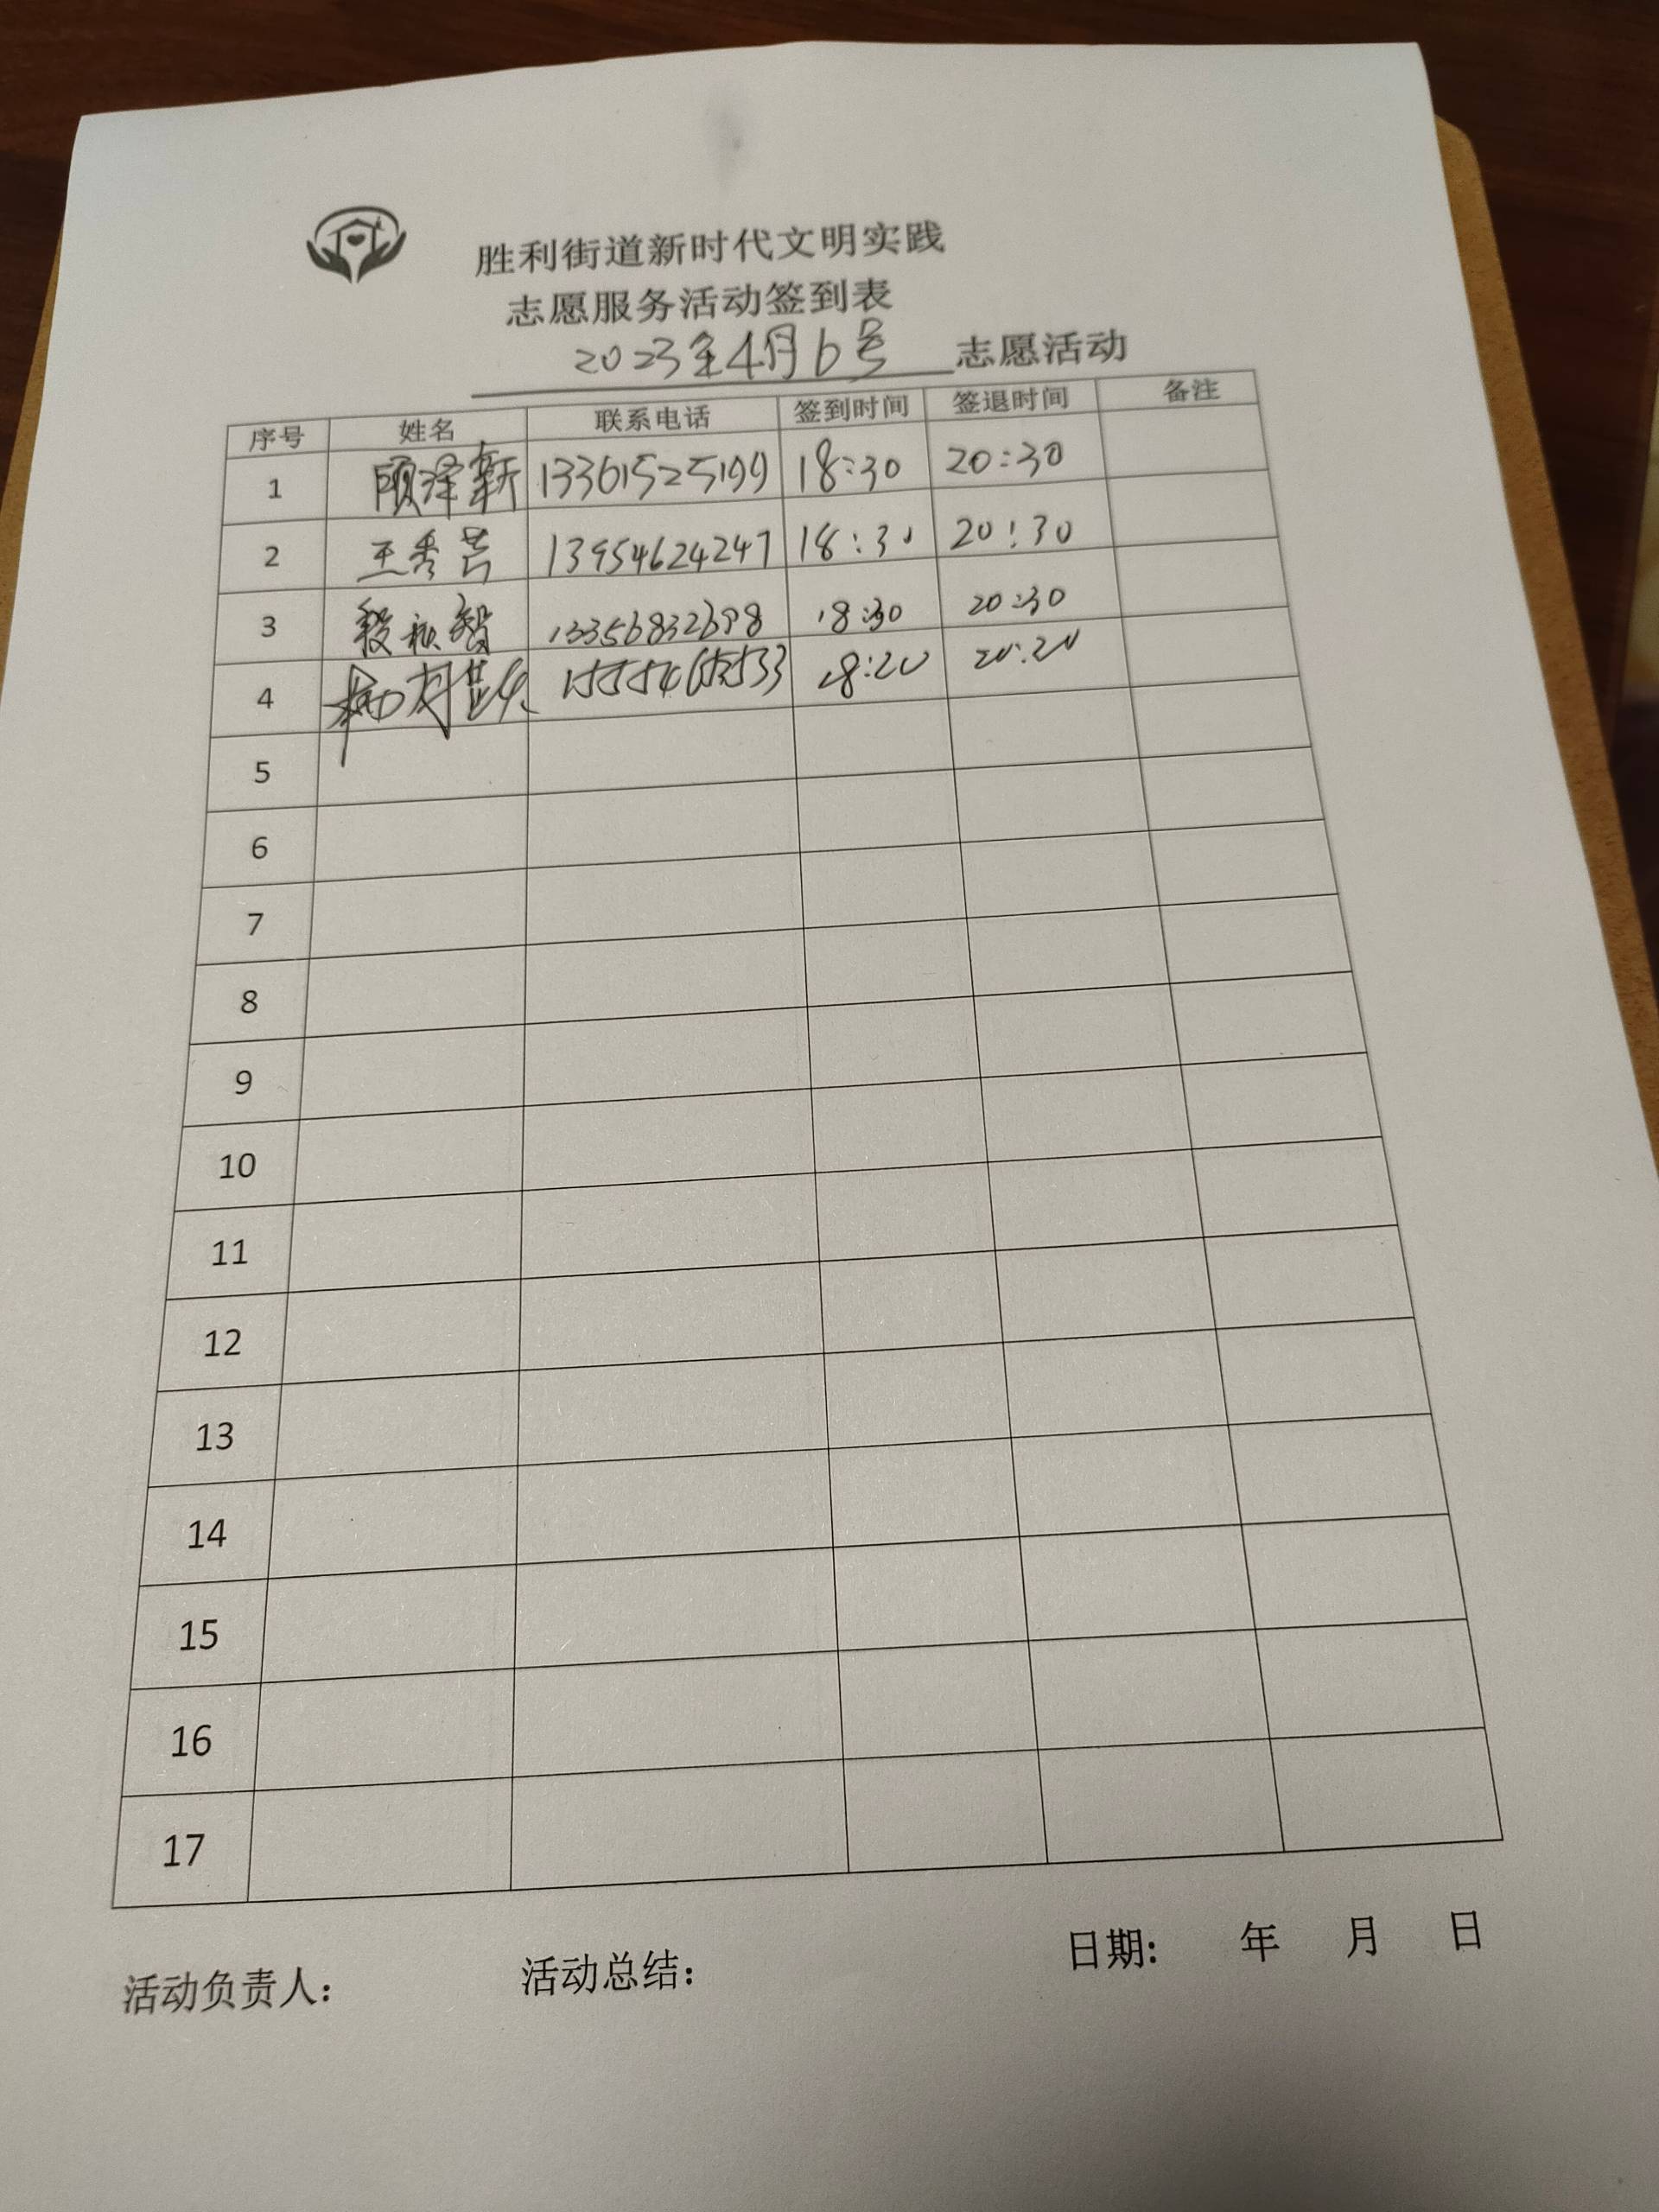 胜利街道新时代文明实践
志愿服务活动签到表
2023年4月6号 志愿活动
序号 姓名 联系电话 签到时间 签退时间 备注
1 顾泽新 13361525199 18:30 20:30
2 王秀芳 13954624247 18:30 20:30
3 18:30 20:30
4 18:20 20:20
5
6
7
8
9
10
11
12
13
14
15
16
17
活动负责人: 活动总结: 日期: 年 月 日